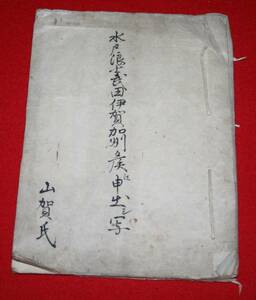 水戸浪士武田伊賀加州侯江申出之写
山賀氏